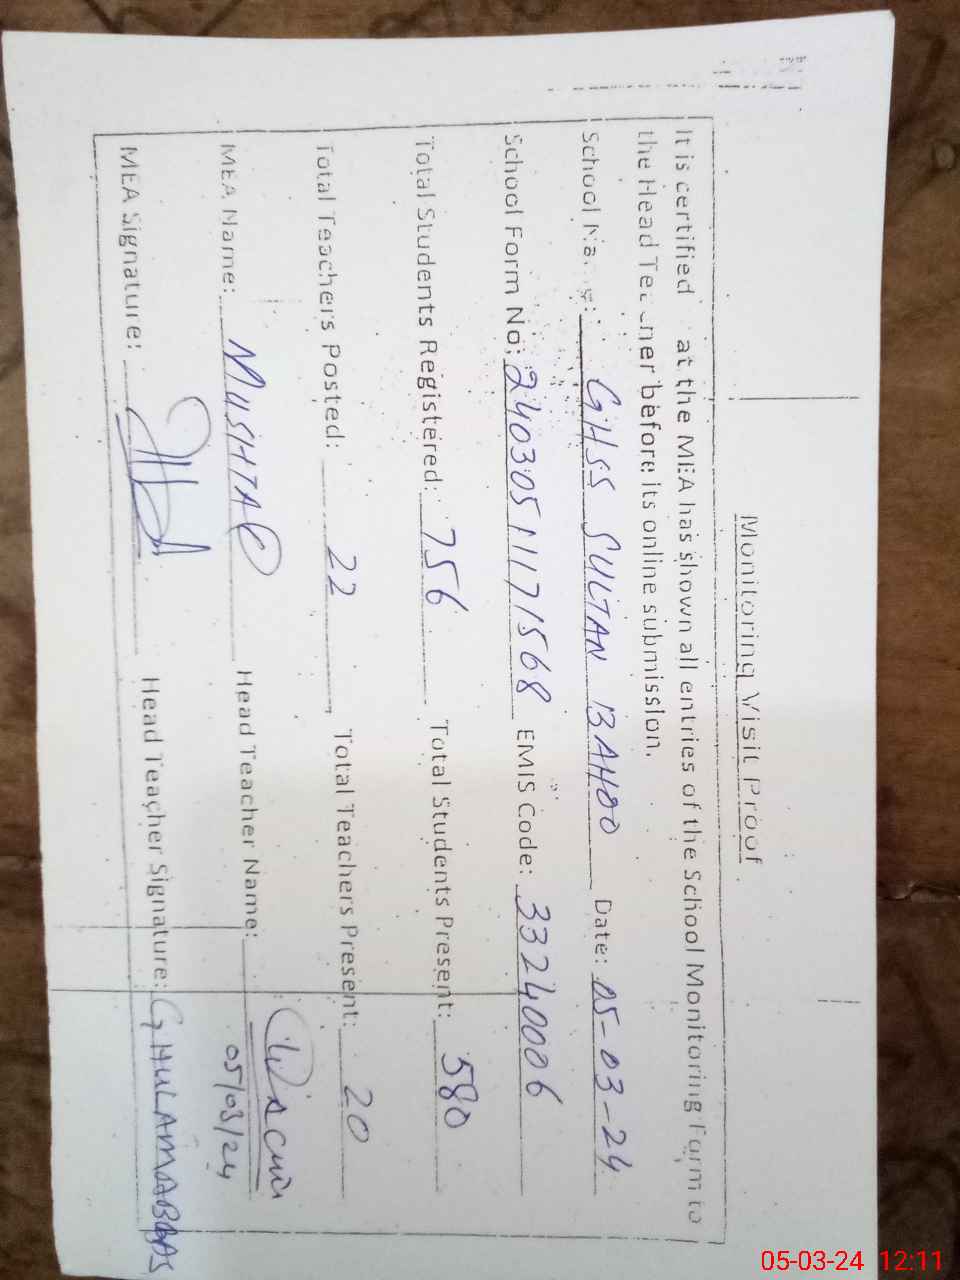 Monitoring Visit Proof
It is certified at the MEA has shown all entries of the School Monitoring Form to
the Head Teacher before its online submission.
School Name: GHSS SULTAN BAHOO Date: 05-03-24
School Form No: 2403051171568 EMIS Code: 33240006
Total Students Registered: 756 Total Students Present: 580
Total Teachers Posted: 22 Total Teachers Present: 20
MEA Name: MUSHTAQ Head Teacher Name:
05/03/24
MEA Signature: Head Teacher Signature: GHULAM ABBAS
05-03-24 12:11